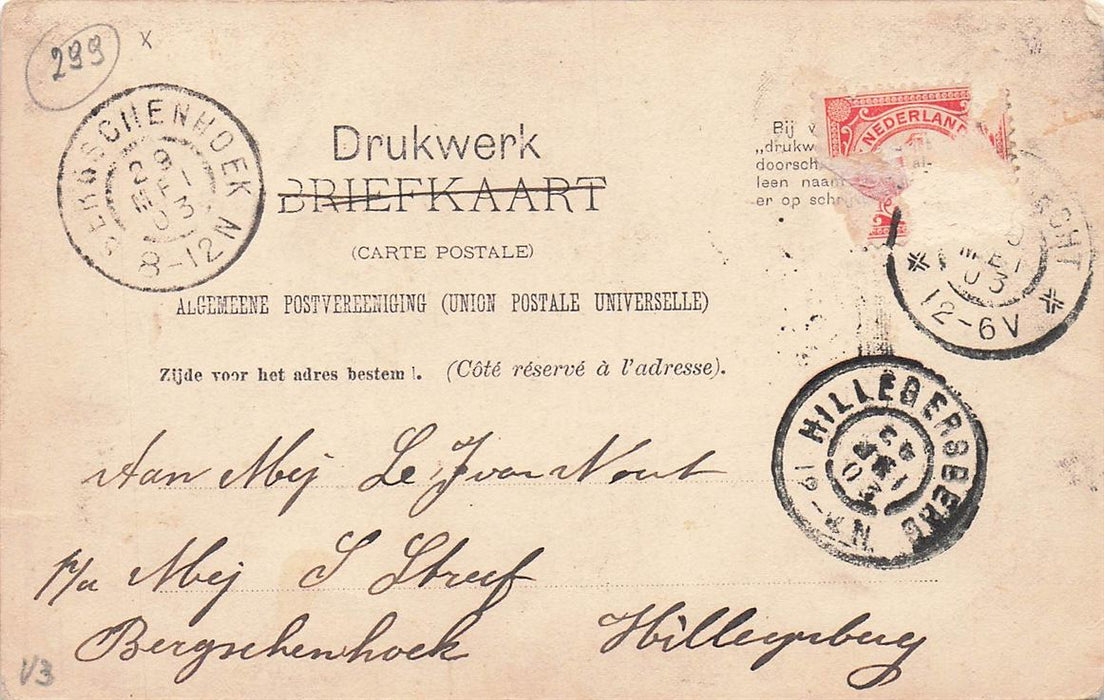 299 x
BERGSCHENHOEK
8-12N
Drukwerk
BRIEFKAART
(CARTE POSTALE)
ALGEMEENE POSTVEREENIGING (UNION POSTALE UNIVERSELLE)
Zijde voor het adres bestem . (Côté réservé à l'adresse).
Bij
„drukw
doorsch
leen naam
er op schrij
NEDERLAND
MEI
03
12-6V
HILLEGERSBERG
MEI
03
N
Aan Mej
p/a Mej S Streef
Bergschenhoek Hillegersberg
V3